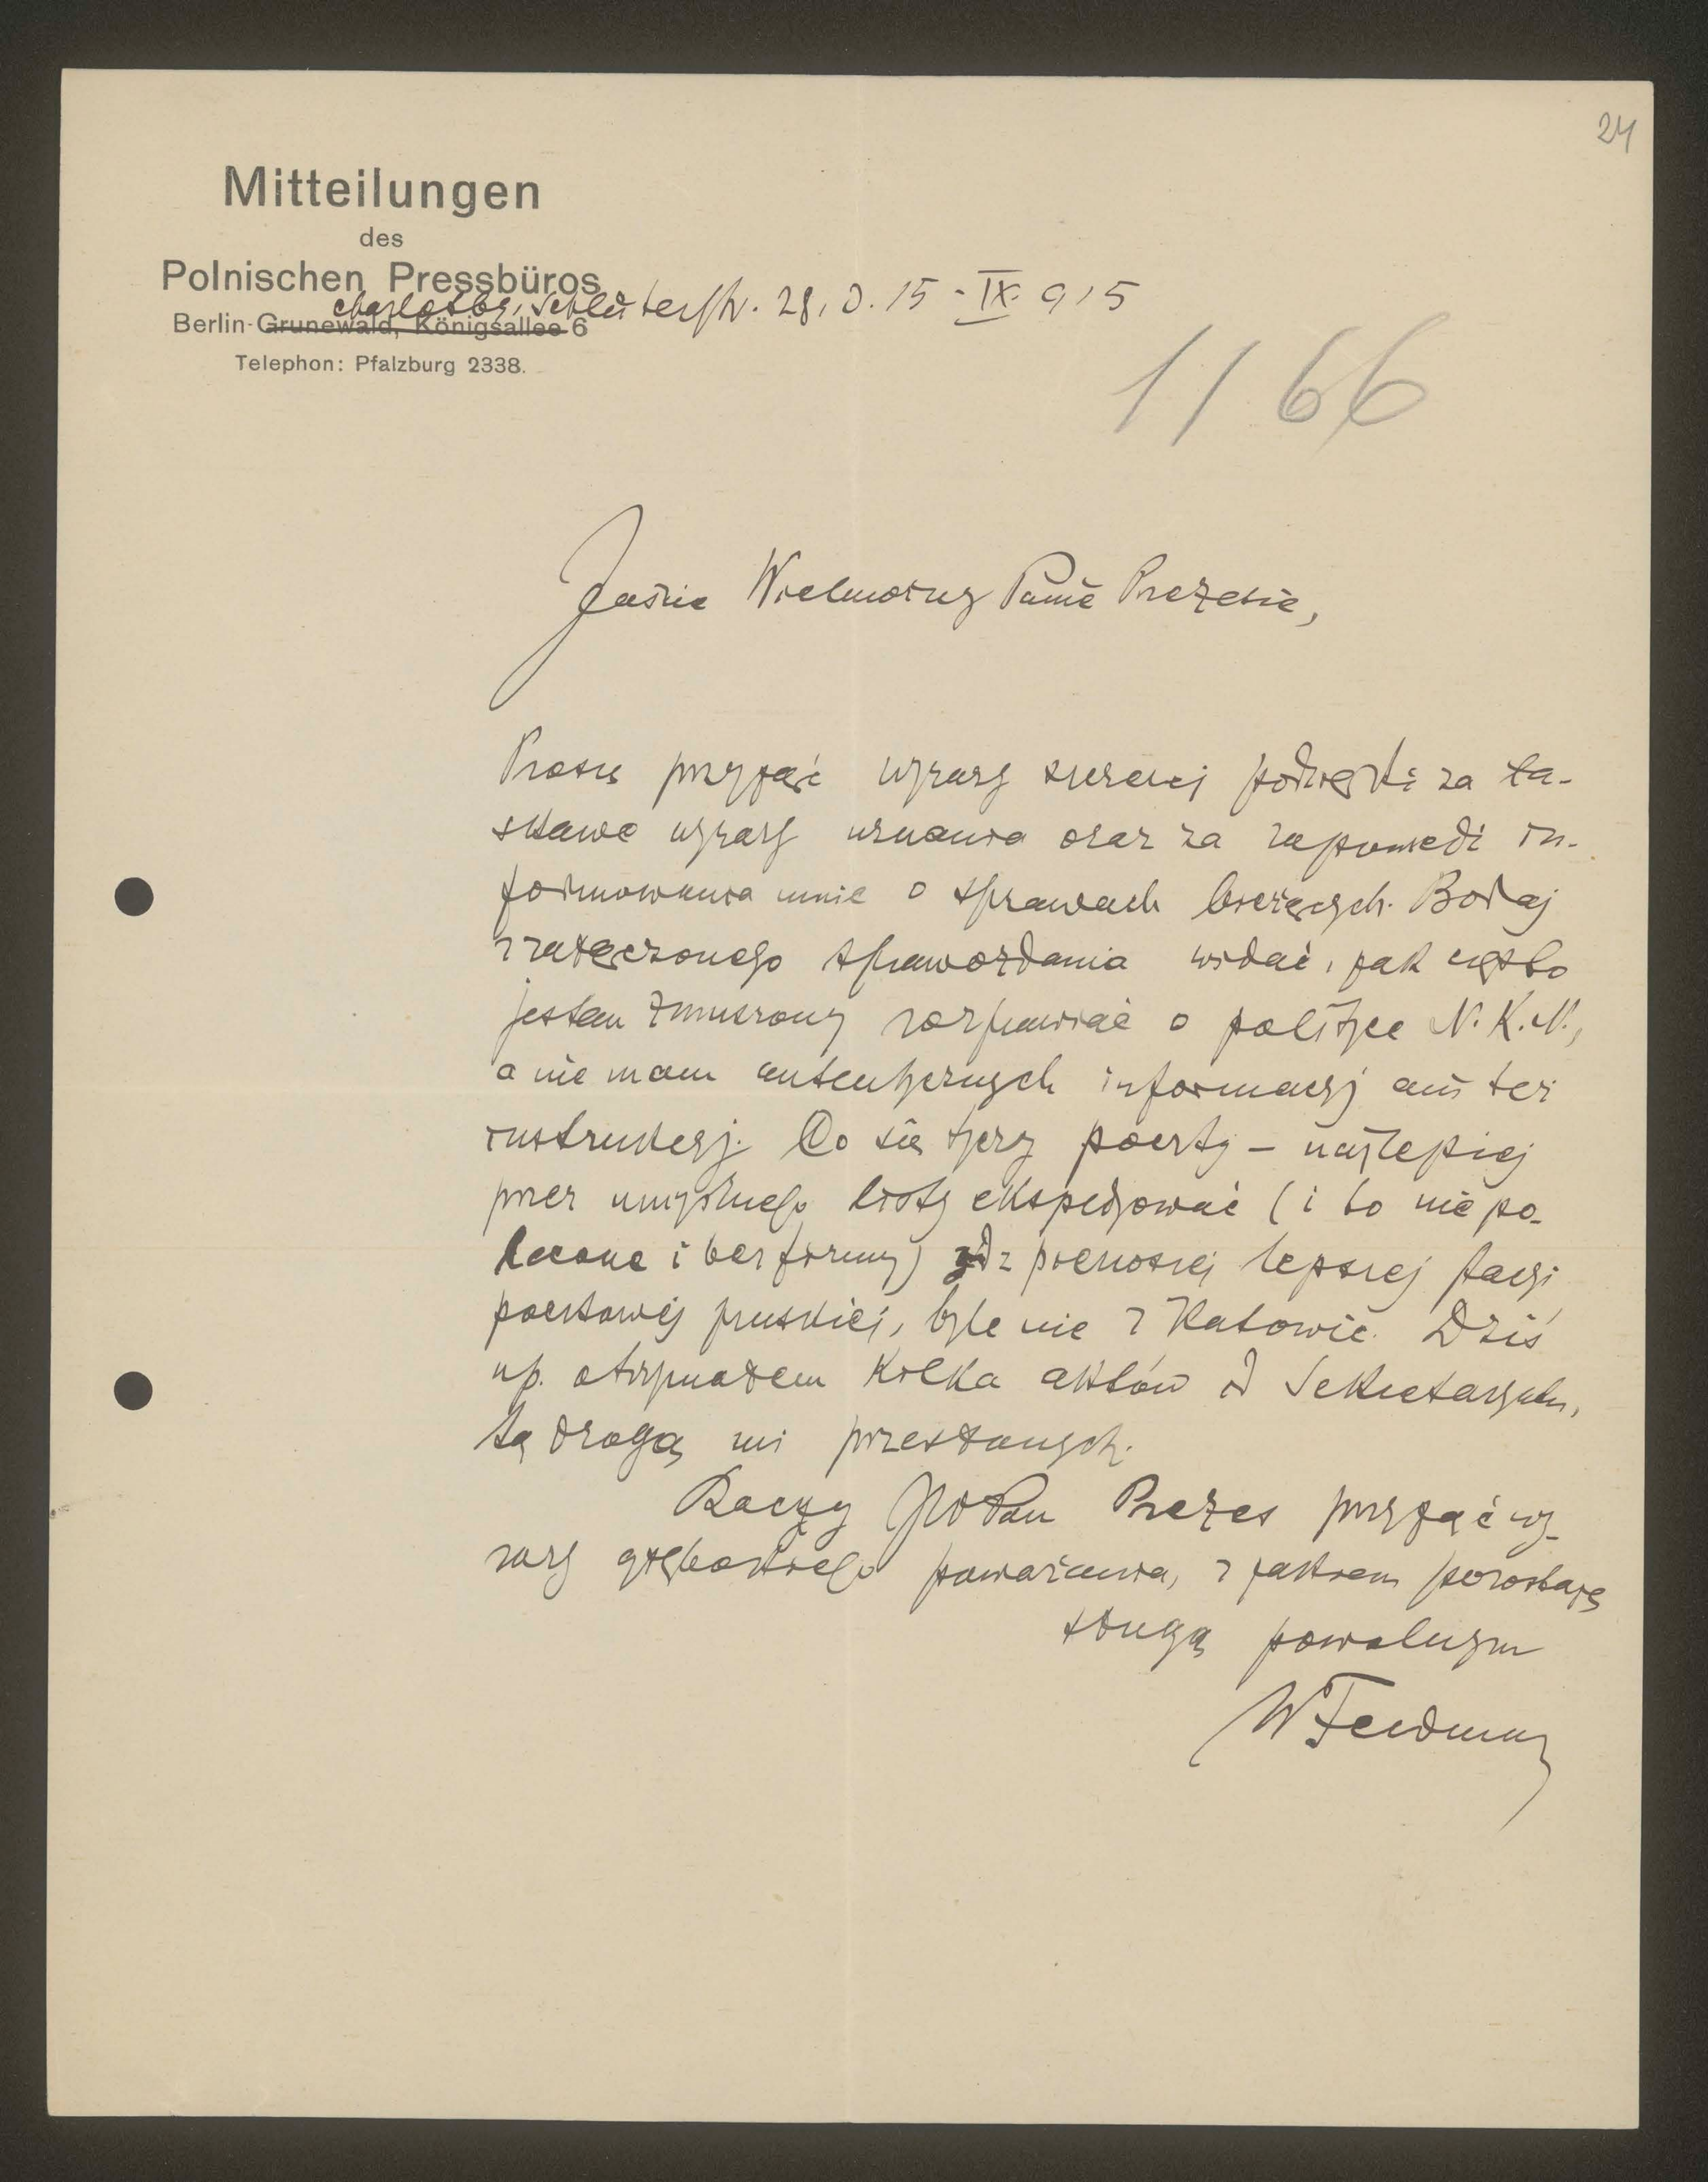 24
Mitteilungen
des
Polnischen Pressbüros
Charlottbg, Schlüterstr. 28, d. 15-IX. 915
Berlin-Grunewald, Königsallee 6
Telephon: Pfalzburg 2338.
1166
Jaśnie Wielmożny Panie Prezesie,
Proszę przyjąć wyrazy szczerej podzięki za ła-
skawe wyrazy uznania oraz za zapowiedź in-
formowania mnie o sprawach bieżących. Bodaj
z załączonego sprawozdania widać, jak często
jestem zmuszony rozprawiać o polityce N.K.N.,
a nie mam autentycznych informacyj ani też
instrukcyj. Co się tyczy poczty – najlepiej
przez umyślnego listy ekspedyować (i to nie po-
lecone i bez firmy) z pierwszej lepszej stacyi
pocztowej pruskiej, byle nie z Katowic. Dziś
np. otrzymałem kilka aktów od Sekretaryatu,
tą drogą mi przesłanych.
Raczy JWPan Prezes przyjąć wy-
razy głębokiego poważania, z jakiem pozostaję
sługą powolnym
WFeldman